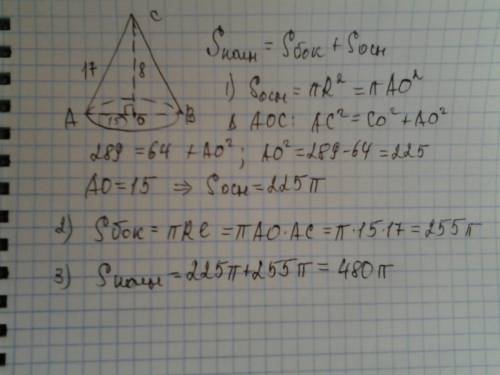 C
17
8
A
15
O
B
Sконн = Sбок + Sосн
1) Sосн = πR² = πAO²
Δ AOC: AC² = CO² + AO²
289 = 64 + AO²; AO² = 289 - 64 = 225
AO = 15 ⇒ Sосн = 225π
2) Sбок = πRℓ = πAO·AC = π·15·17 = 255π
3) Sконн = 225π + 255π = 480π